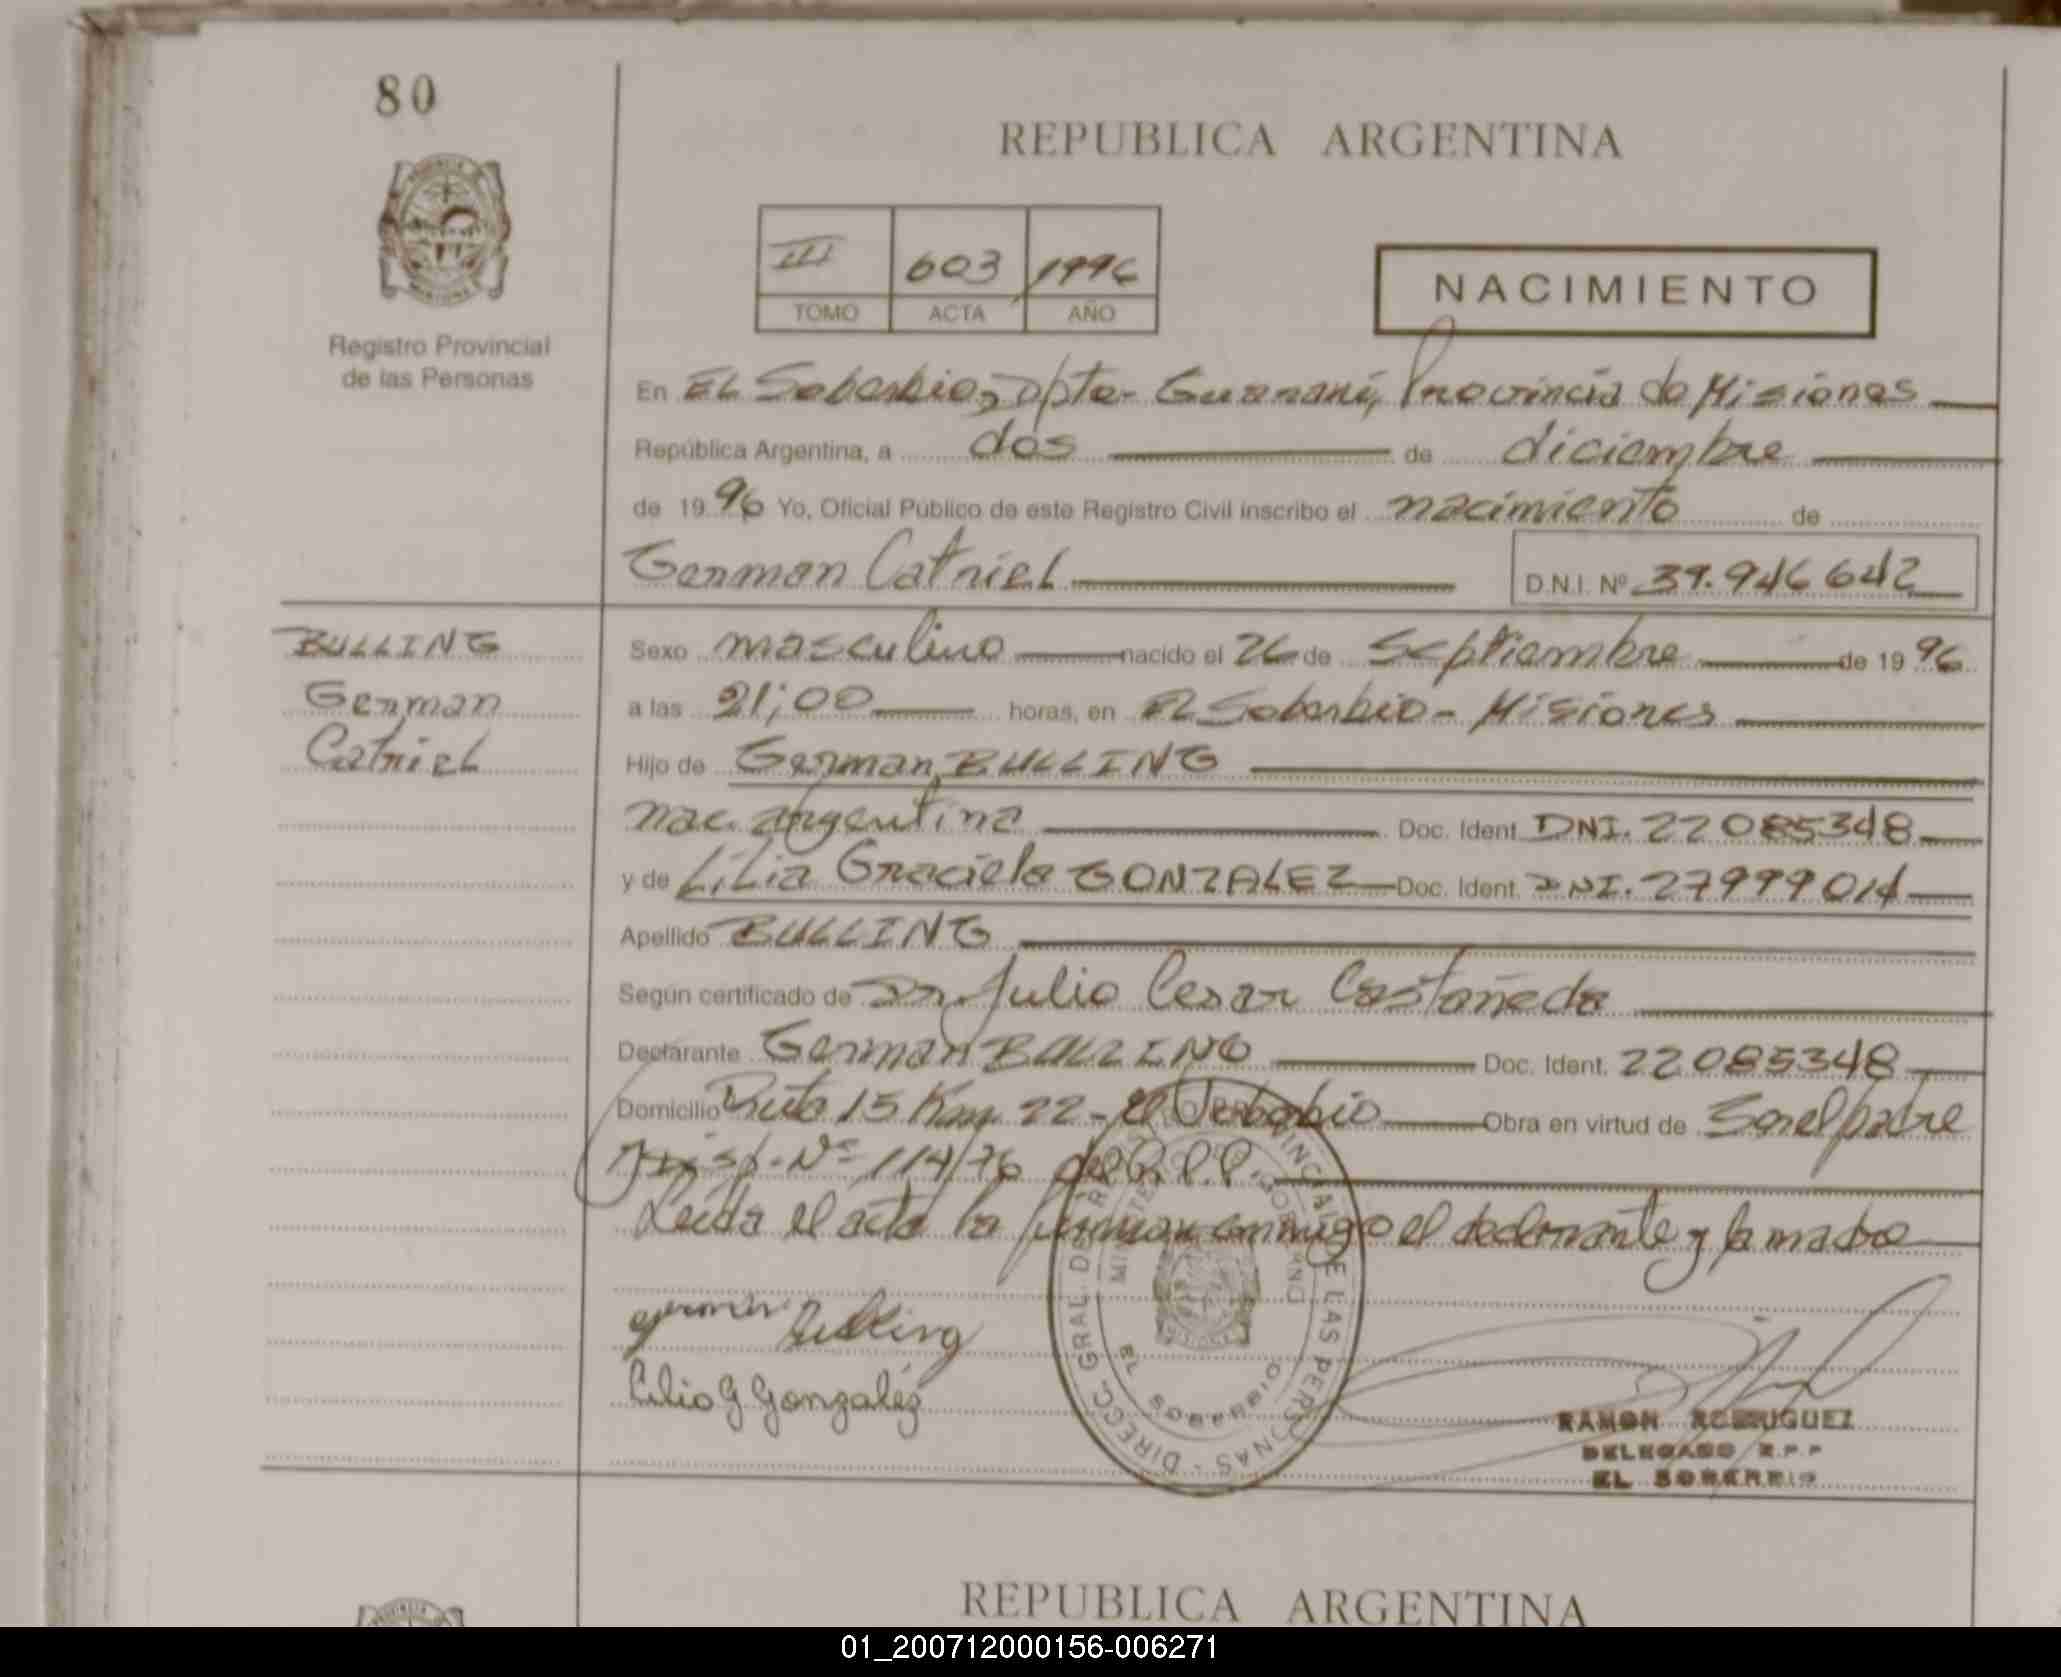 80
REPUBLICA ARGENTINA
III 603 1996
TOMO ACTA AÑO
NACIMIENTO
Registro Provincial
de las Personas
En EL Soberbio, Dpto- Guarani, Provincia de Misiones
República Argentina, a dos de diciembre
de 1996 Yo, Oficial Público de este Registro Civil inscribo el nacimiento de
German Catriel D.N.I. Nº 39.946642
BULLING
German
Catriel
Sexo masculino nacido el 26 de Septiembre de 1996
a las 21;00 horas, en El Soberbio - Misiones
Hijo de German BULLING
nac. argentina Doc. Ident. DNI. 22085348
y de Lilia Graciela GONZALEZ Doc. Ident. DNI. 27999014
Apellido BULLING
Según certificado de Dr. Julio Cesar Castañeda
Declarante German BULLING Doc. Ident. 22085348
Domicilio Ruta 15 Km 22 - El Soberbio Obra en virtud de Ser el padre
Disp. Nº 114/76 del R.P.P.
Leida el acta la firman conmigo el declarante y la madre
German Bulling
Lilia G Gonzaléz
DIRECC. GRAL. DEL REGISTRO PROVINCIAL DE LAS PERSONAS
MINISTERIO DE GOBIERNO
EL SOBERBIO
RAMON RODRIGUEZ
DELEGADO R.P.P
EL SOBERBIO
REPUBLICA ARGENTINA
01_200712000156-006271